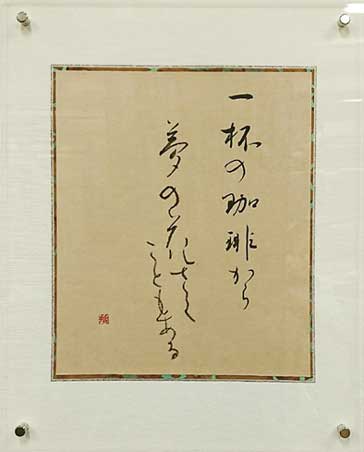 一杯の珈琲から
夢の花さく
こともある